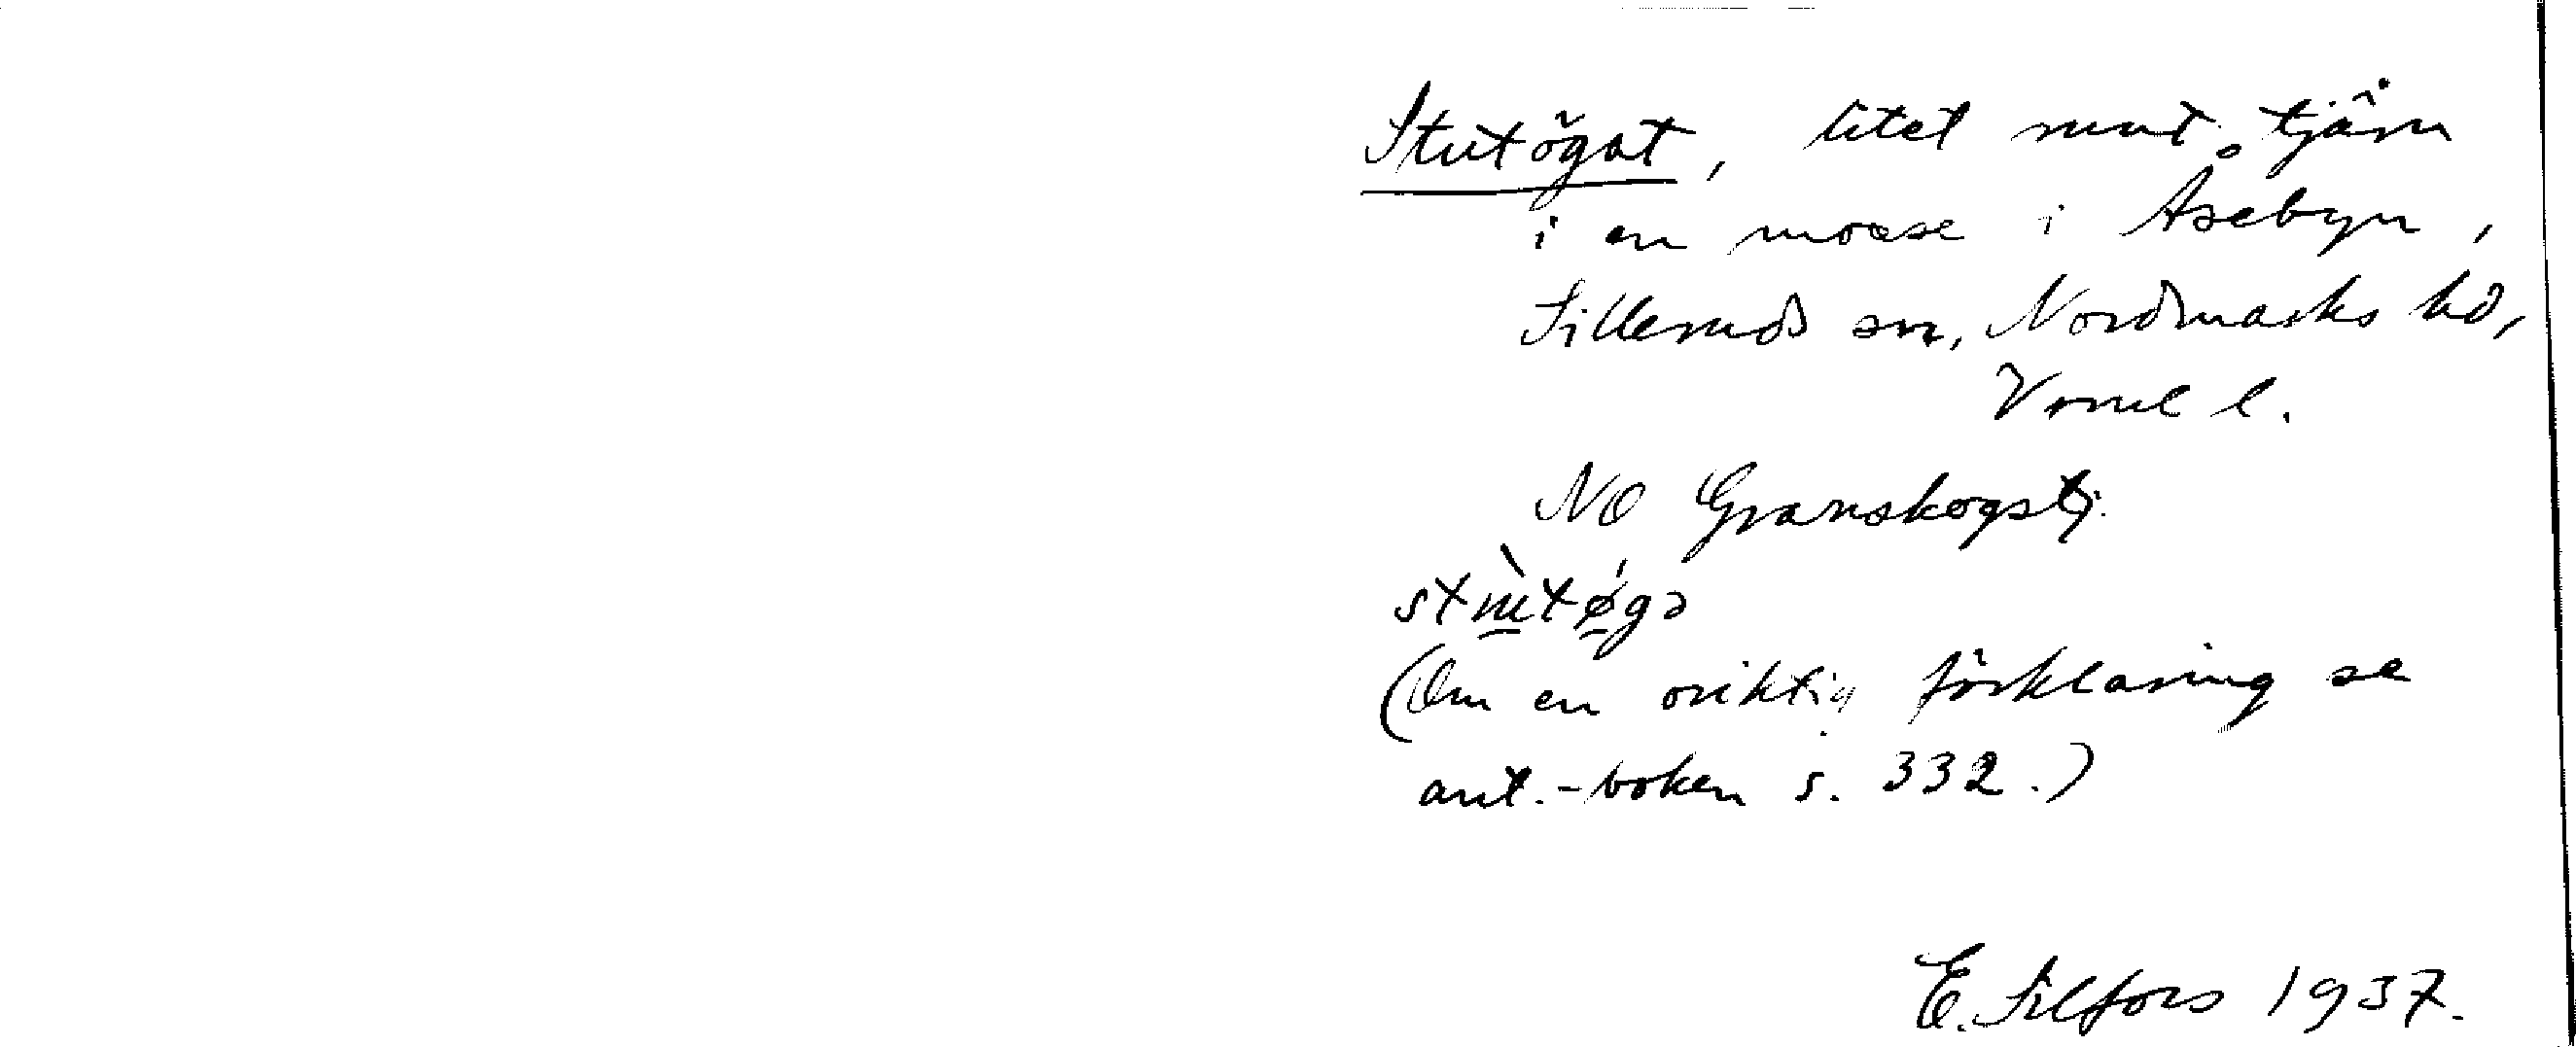 Stutögat, litet runt tjärn
i en mosse i Åsebyn,
Silleruds sn, Nordmarks hd,
Vrml l.
NO Granskogstj.
(Om en oriktig förklaring se
ant.-boken s. 332.)
E. Silfors 1937.